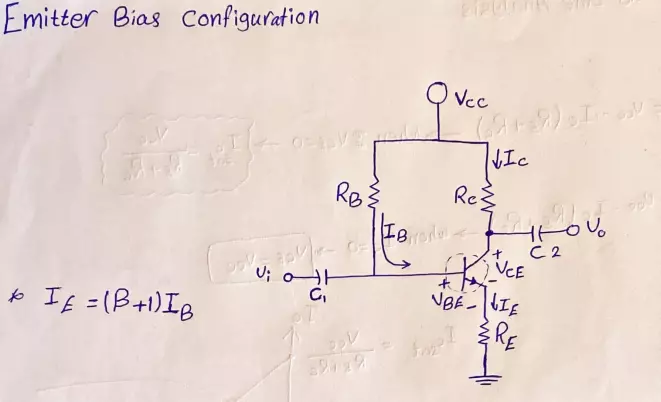 Emitter Bias Configuration
Vcc
↓Ic
RB
Rc
IB
Vo
C2
Vi
C1
+
VCE
-
+
VBE-
↓IE
RE
* IE = (β+1)IB